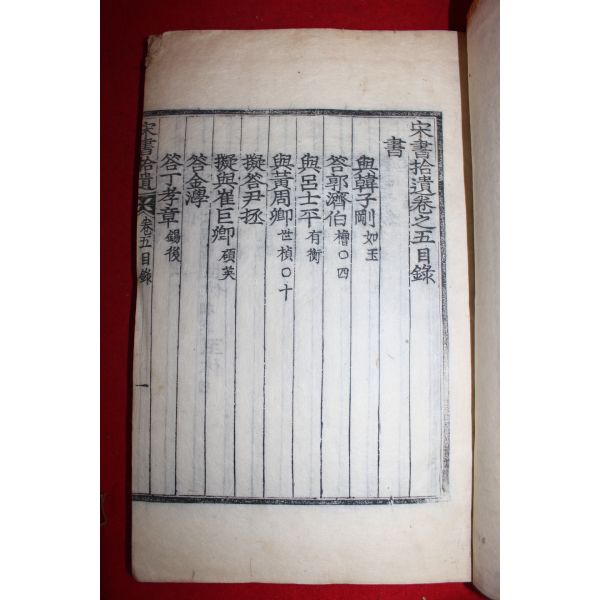 宋書拾遺卷之五目錄
書
與韓子剛 如玉
答郭濟伯 橹〇四
與呂士平 有衡
與黃周卿 世楨〇十
擬答尹拯
擬與崔巨卿 碩英
答金澕
答丁孝章 錫後
宋書拾遺 卷五目錄 一